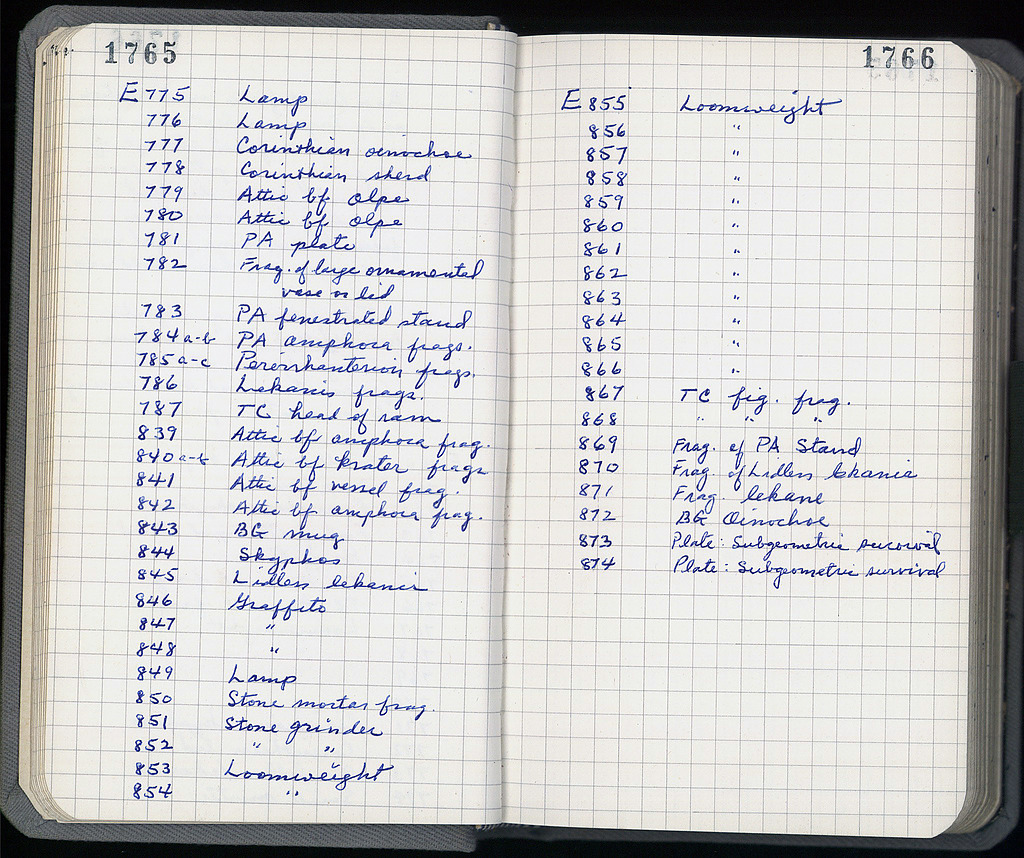 1765
E 775 Lamp
776 Lamp
777 Corinthian oinochoe
778 Corinthian sherd
779 Attic bf olpe
780 Attic bf olpe
781 PA plate
782 Frag. of large ornamental
vase or lid
783 PA fenestrated stand
784 a-b PA amphora frags.
785 a-c Perirrhanterion frags.
786 Lekanis frags.
787 TC head of ram
839 Attic bf amphora frag.
840 a-b Attic bf krater frags
841 Attic bf vessel frag.
842 Attic bf amphora frag.
843 BG mug
844 Skyphos
845 Lidless lekanis
846 Graffito
847 "
848 "
849 Lamp
850 Stone mortar frag.
851 Stone grinder
852 " "
853 Loomweight
854 "
1766
E 855 Loomweight
856 "
857 "
858 "
859 "
860 "
861 "
862 "
863 "
864 "
865 "
866 "
867 TC fig. frag.
868 " " "
869 Frag. of PA Stand
870 Frag. of Lidless lekanis
871 Frag. lekane
872 BG Oinochoe
873 Plate: Subgeometric survival
874 Plate: Subgeometric survival